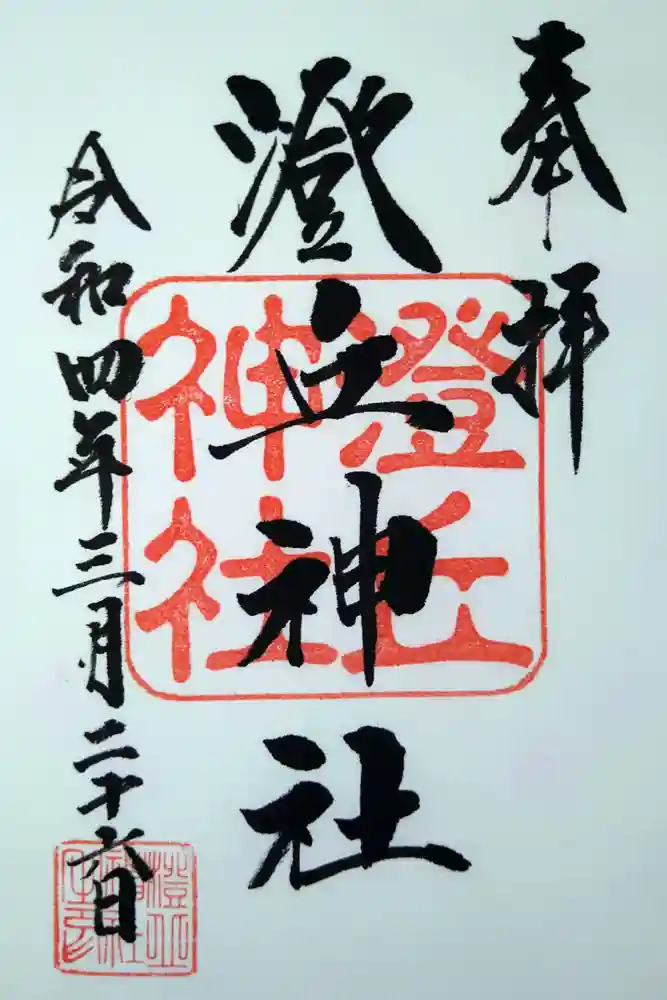 奉拝
澄丘神社
澄丘
神社
令和四年三月二十六日